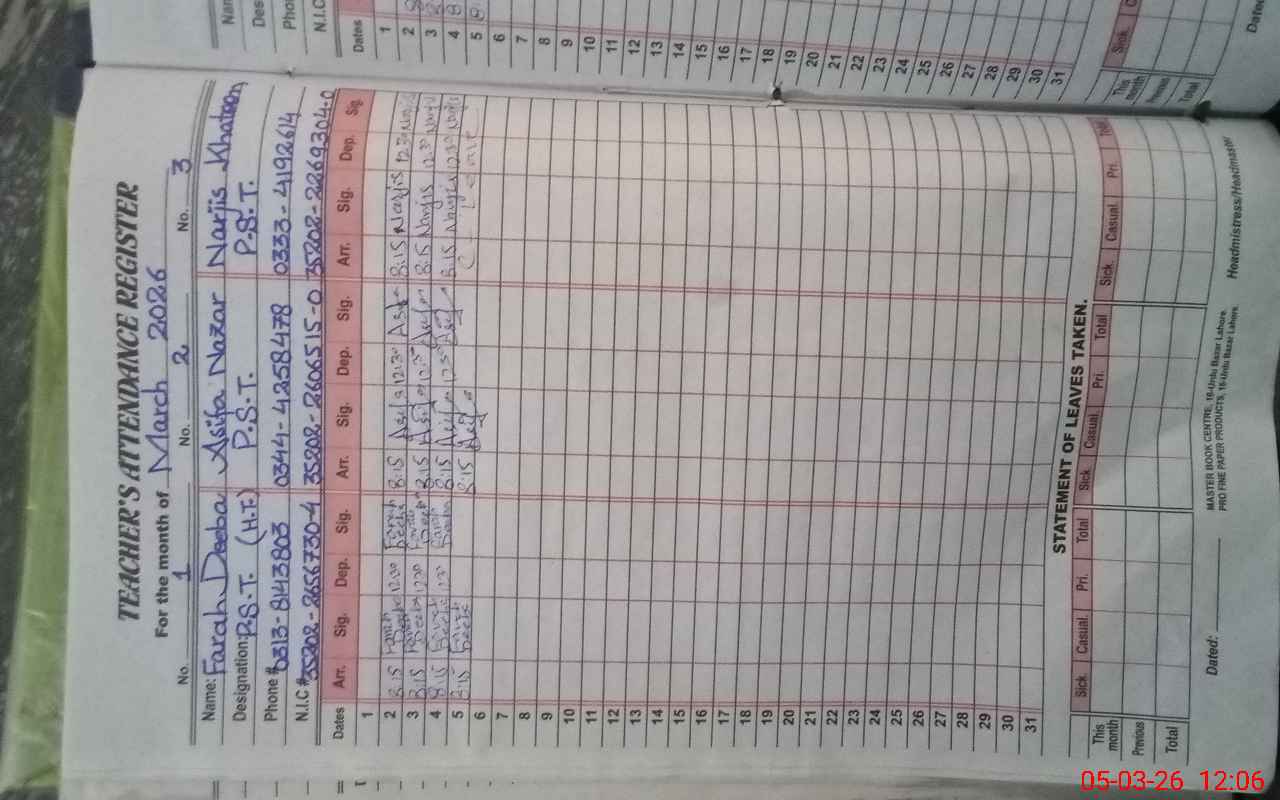 TEACHER'S ATTENDANCE REGISTER
For the month of March 2026
No. 1 No. 2 No. 3
Name: Farah Deeba Asifa Nazar Narjis Khatoon
Designation: P.S.T. (H.T.) P.S.T. P.S.T.
Phone # 0313-8143803 0344-4258478 0333-4192614
N.I.C # 35202-2656730-4 35202-2606515-0 35202-2269304-0
Dates Arr. Sig. Dep. Sig. Arr. Sig. Dep. Sig. Arr. Sig. Dep. Sig.
1
2 8:15 Farah Deeba 12:30 Farah Deeba 8:15 12:30 8:15 Narjis 12:30 Narjis
3 8:15 Farah Deeba 12:30 Farah Deeba 8:15 8:15 Narjis 12:30 Narjis
4 8:15 Farah Deeba Farah Deeba 8:15 8:15 Narjis 12:30 Narjis
5 8:15 Farah Deeba 8:15
6
7
8
9
10
11
12
13
14
15
16
17
18
19
20
21
22
23
24
25
26
27
28
29
30
31
STATEMENT OF LEAVES TAKEN.
Sick. Casual. Pri. Total Sick. Casual. Pri. Total Sick. Casual. Pri. Total
This month
Previous
Total
Dated:
MASTER BOOK CENTRE, 16-Urdu Bazar Lahore.
PRO FINE PAPER PRODUCTS, 16-Urdu Bazar Lahore
Headmistress/Headmaster
Nam
Des
Phon
N.I.C
Dates
1
2 8
3 8
4 8
5 8
6
7
8
9
10
11
12
13
14
15
16
17
18
19
20
21
22
23
24
25
26
27
28
29
30
31
Sick. C
This month
Previous
Total
Dated
05-03-26 12:06